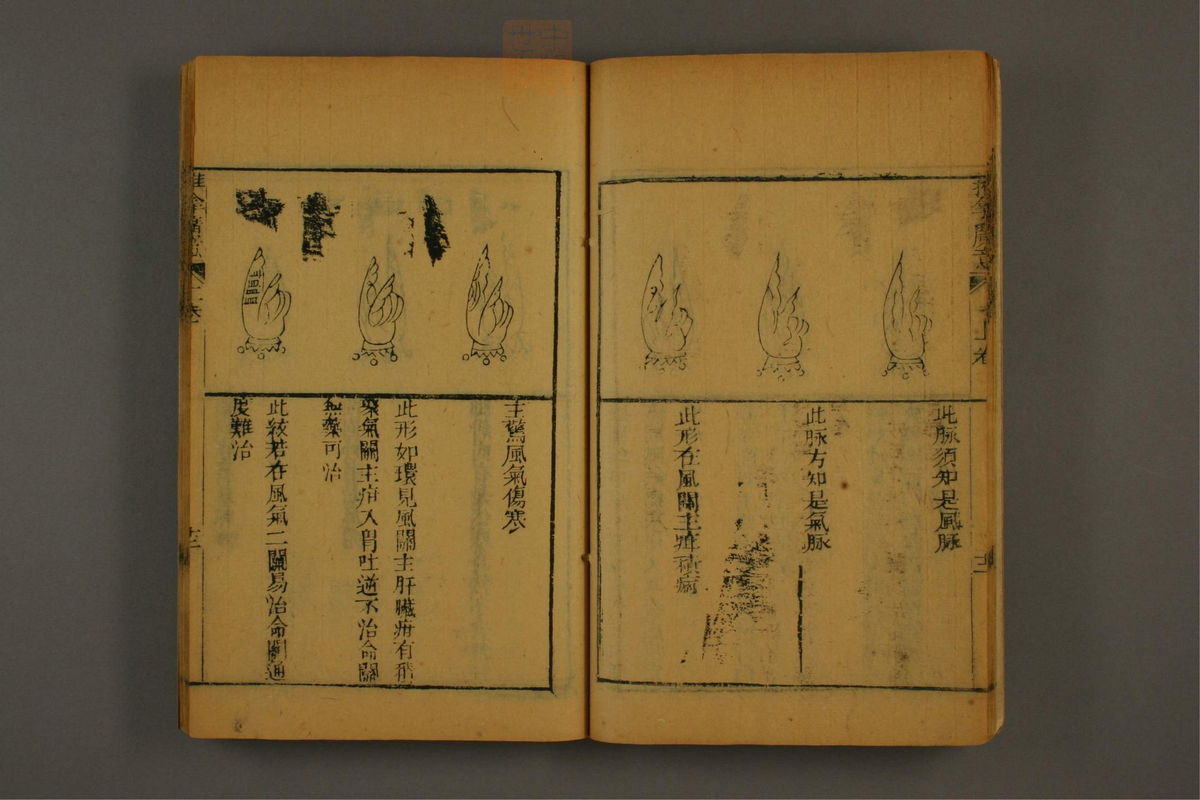 此脉須知是風脉
此脉方知是氣脉
此形在風關主疳積病
主驚風氣傷寒
此形如環見風關主肝臟疳有積
聚氣關主疳入胃吐逆不治命關
無藥可治
此紋若在風氣二關易治命關通
度難治